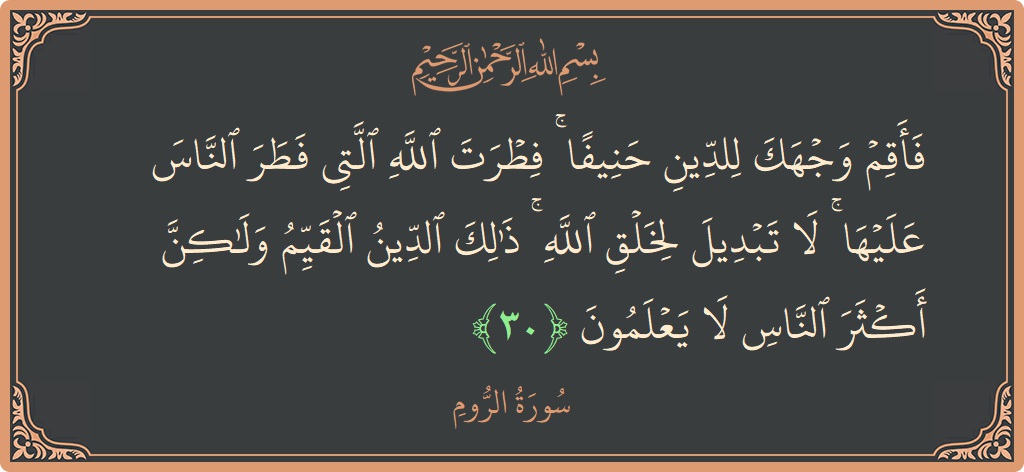 بِسْمِ اللهِ الرَّحْمٰنِ الرَّحِيْمِ
فَأَقِمۡ وَجۡهَكَ لِلدِّينِ حَنِيفٗاۚ فِطۡرَتَ ٱللَّهِ ٱلَّتِي فَطَرَ ٱلنَّاسَ
عَلَيۡهَاۚ لَا تَبۡدِيلَ لِخَلۡقِ ٱللَّهِۚ ذَٰلِكَ ٱلدِّينُ ٱلۡقَيِّمُ وَلَٰكِنَّ
أَكۡثَرَ ٱلنَّاسِ لَا يَعۡلَمُونَ ﴿٣٠﴾
سُورَةُ الرُّومِ